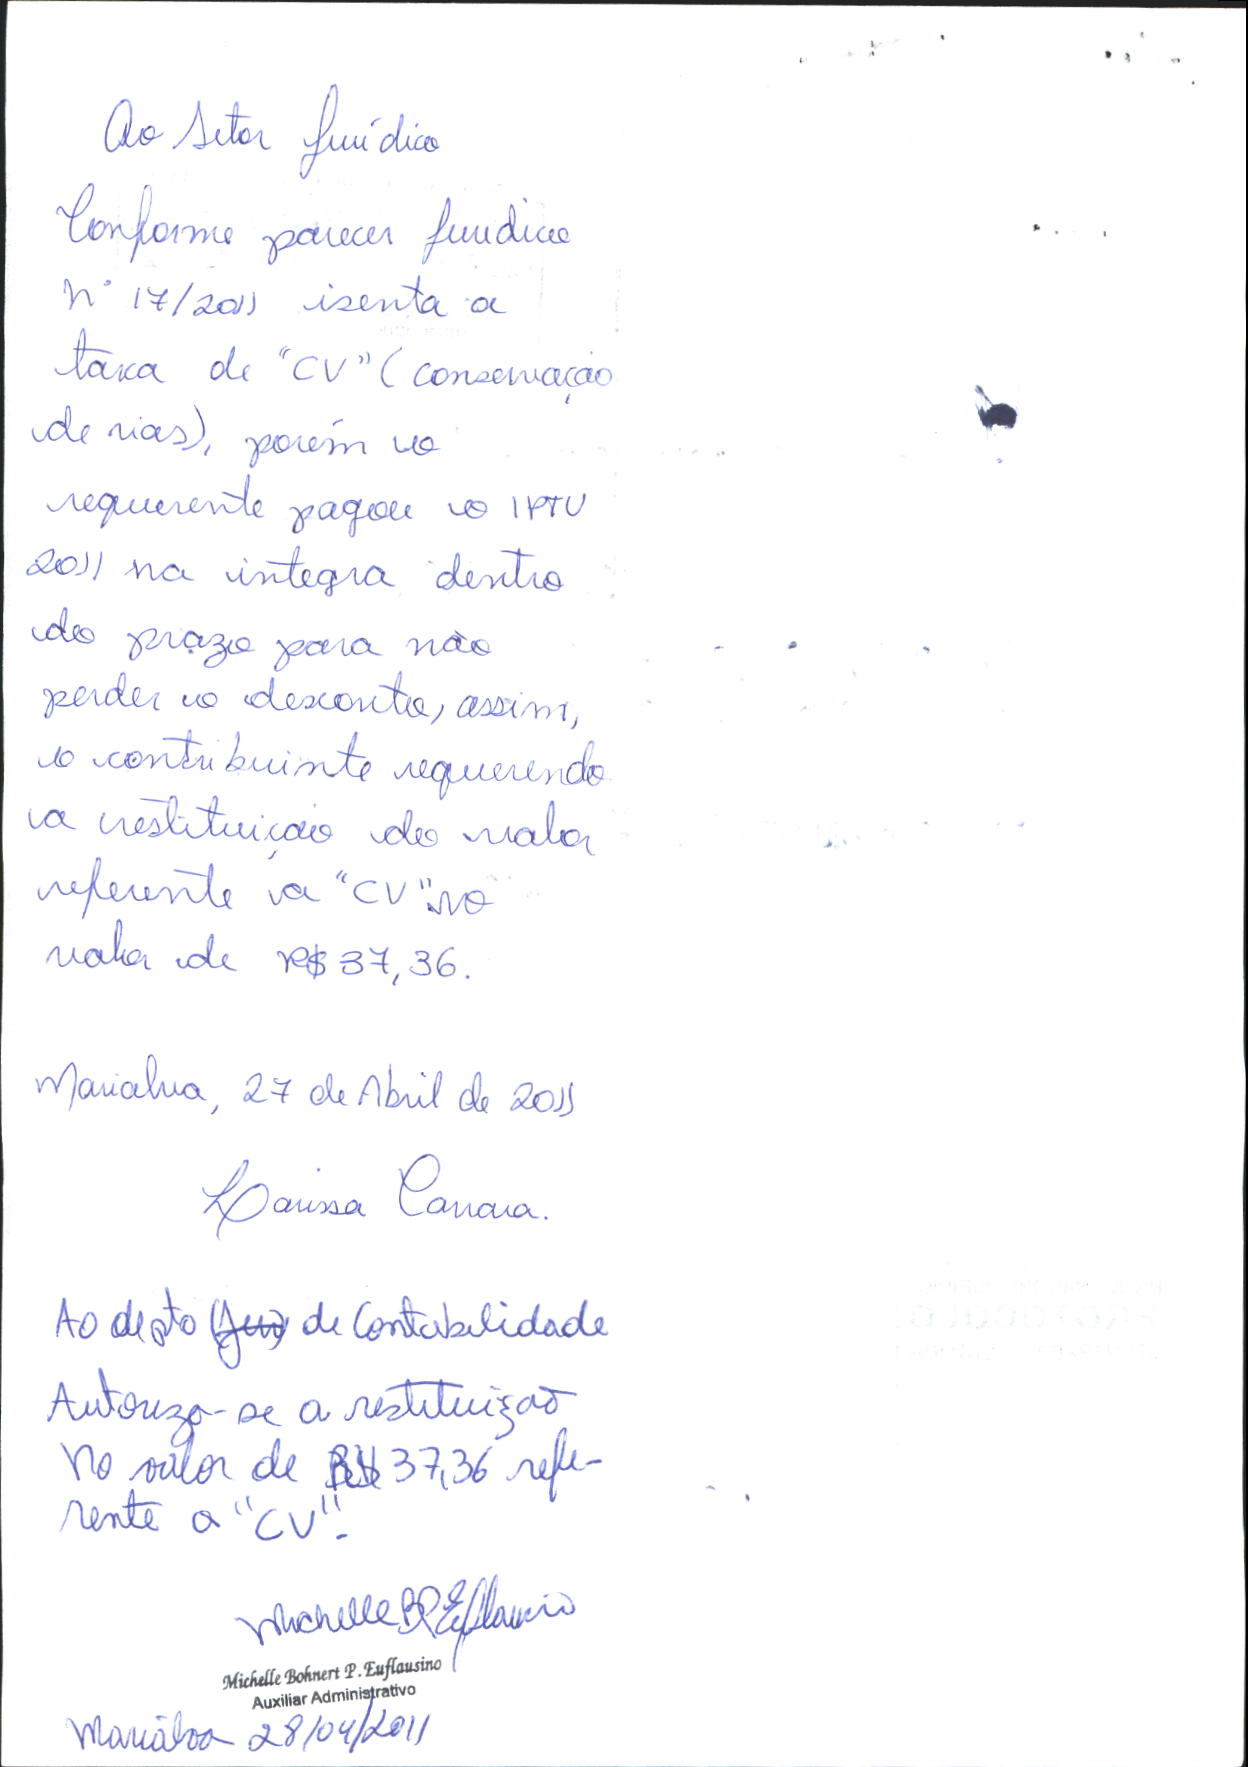 Ao Setor Jurídico
Conforme parecer Juridico
Nº 17/2011 isenta a
taxa de "CV" (conservação
de vias), porém o
requerente pagou o IPTU
2011 na integra dentro
do prazo para não
perder o desconto, assim,
o contribuinte requerendo
a restituição do valor
referente a "CV" no
valor de R$ 37,36.
Marialva, 27 de Abril de 2011
Larissa Carrara.
Ao depto (Jur) de Contabilidade
Autoriza-se a restituição
No valor de R$ 37,36 refe-
rente a "CV".
Michelle BP Euflausino
Michelle Bohnert P. Euflausino
Auxiliar Administrativo
Marialva 28/04/2011